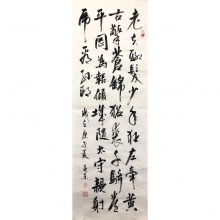 老夫聊發少年狂左牽黃
右擎蒼錦帽貂裘千騎卷
平岡為報傾城隨太守親射
虎看孫郎